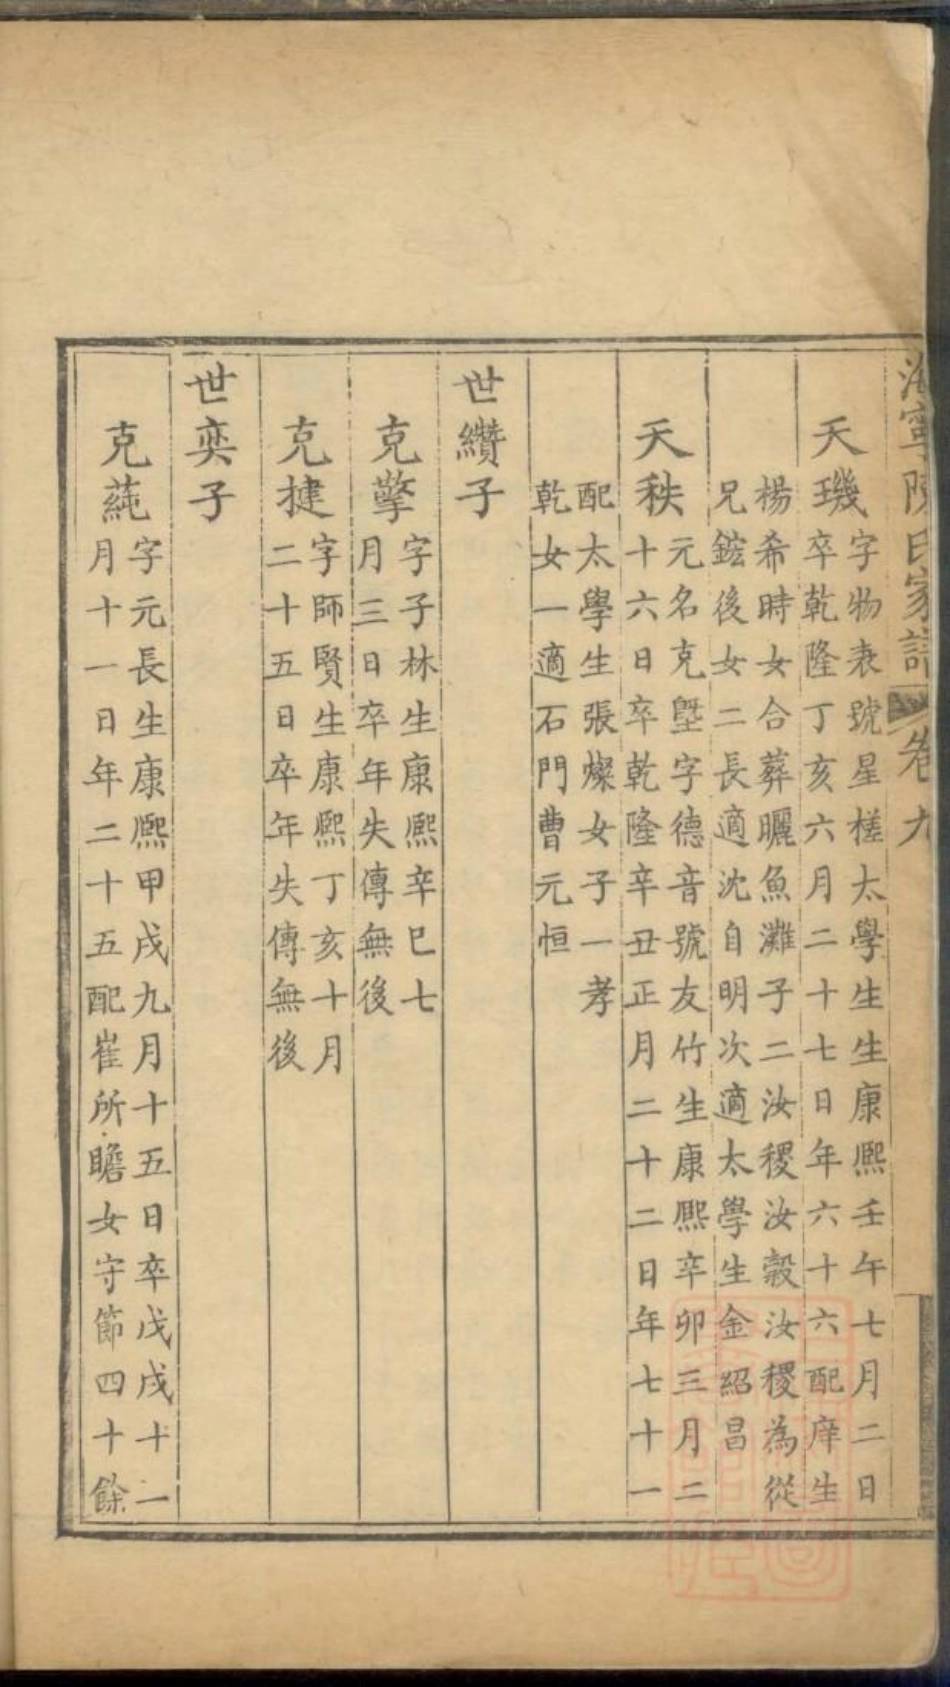 海寧陳氏家譜 卷九
天璣
字物表號星槎太學生生康熙壬午七月二日
卒乾隆丁亥六月二十七日年六十六配庠生
楊希時女合葬曬魚灘子二汝稷汝穀汝稷為從
兄鋐後女二長適沈自明次適太學生金紹昌
天秩
元名克塈字德音號友竹生康熙辛卯三月二
十六日卒乾隆辛丑正月二十二日年七十一
配太學生張燦女子一孝
乾女一適石門曹元恒
世纘子
克擎
字子林生康熙辛巳七
月三日卒年失傳無後
克揵
字師賢生康熙丁亥十月
二十五日卒年失傳無後
世奕子
克蒓
字元長生康熙甲戌九月十五日卒戊戌十一
月十一日年二十五配崔所瞻女守節四十餘